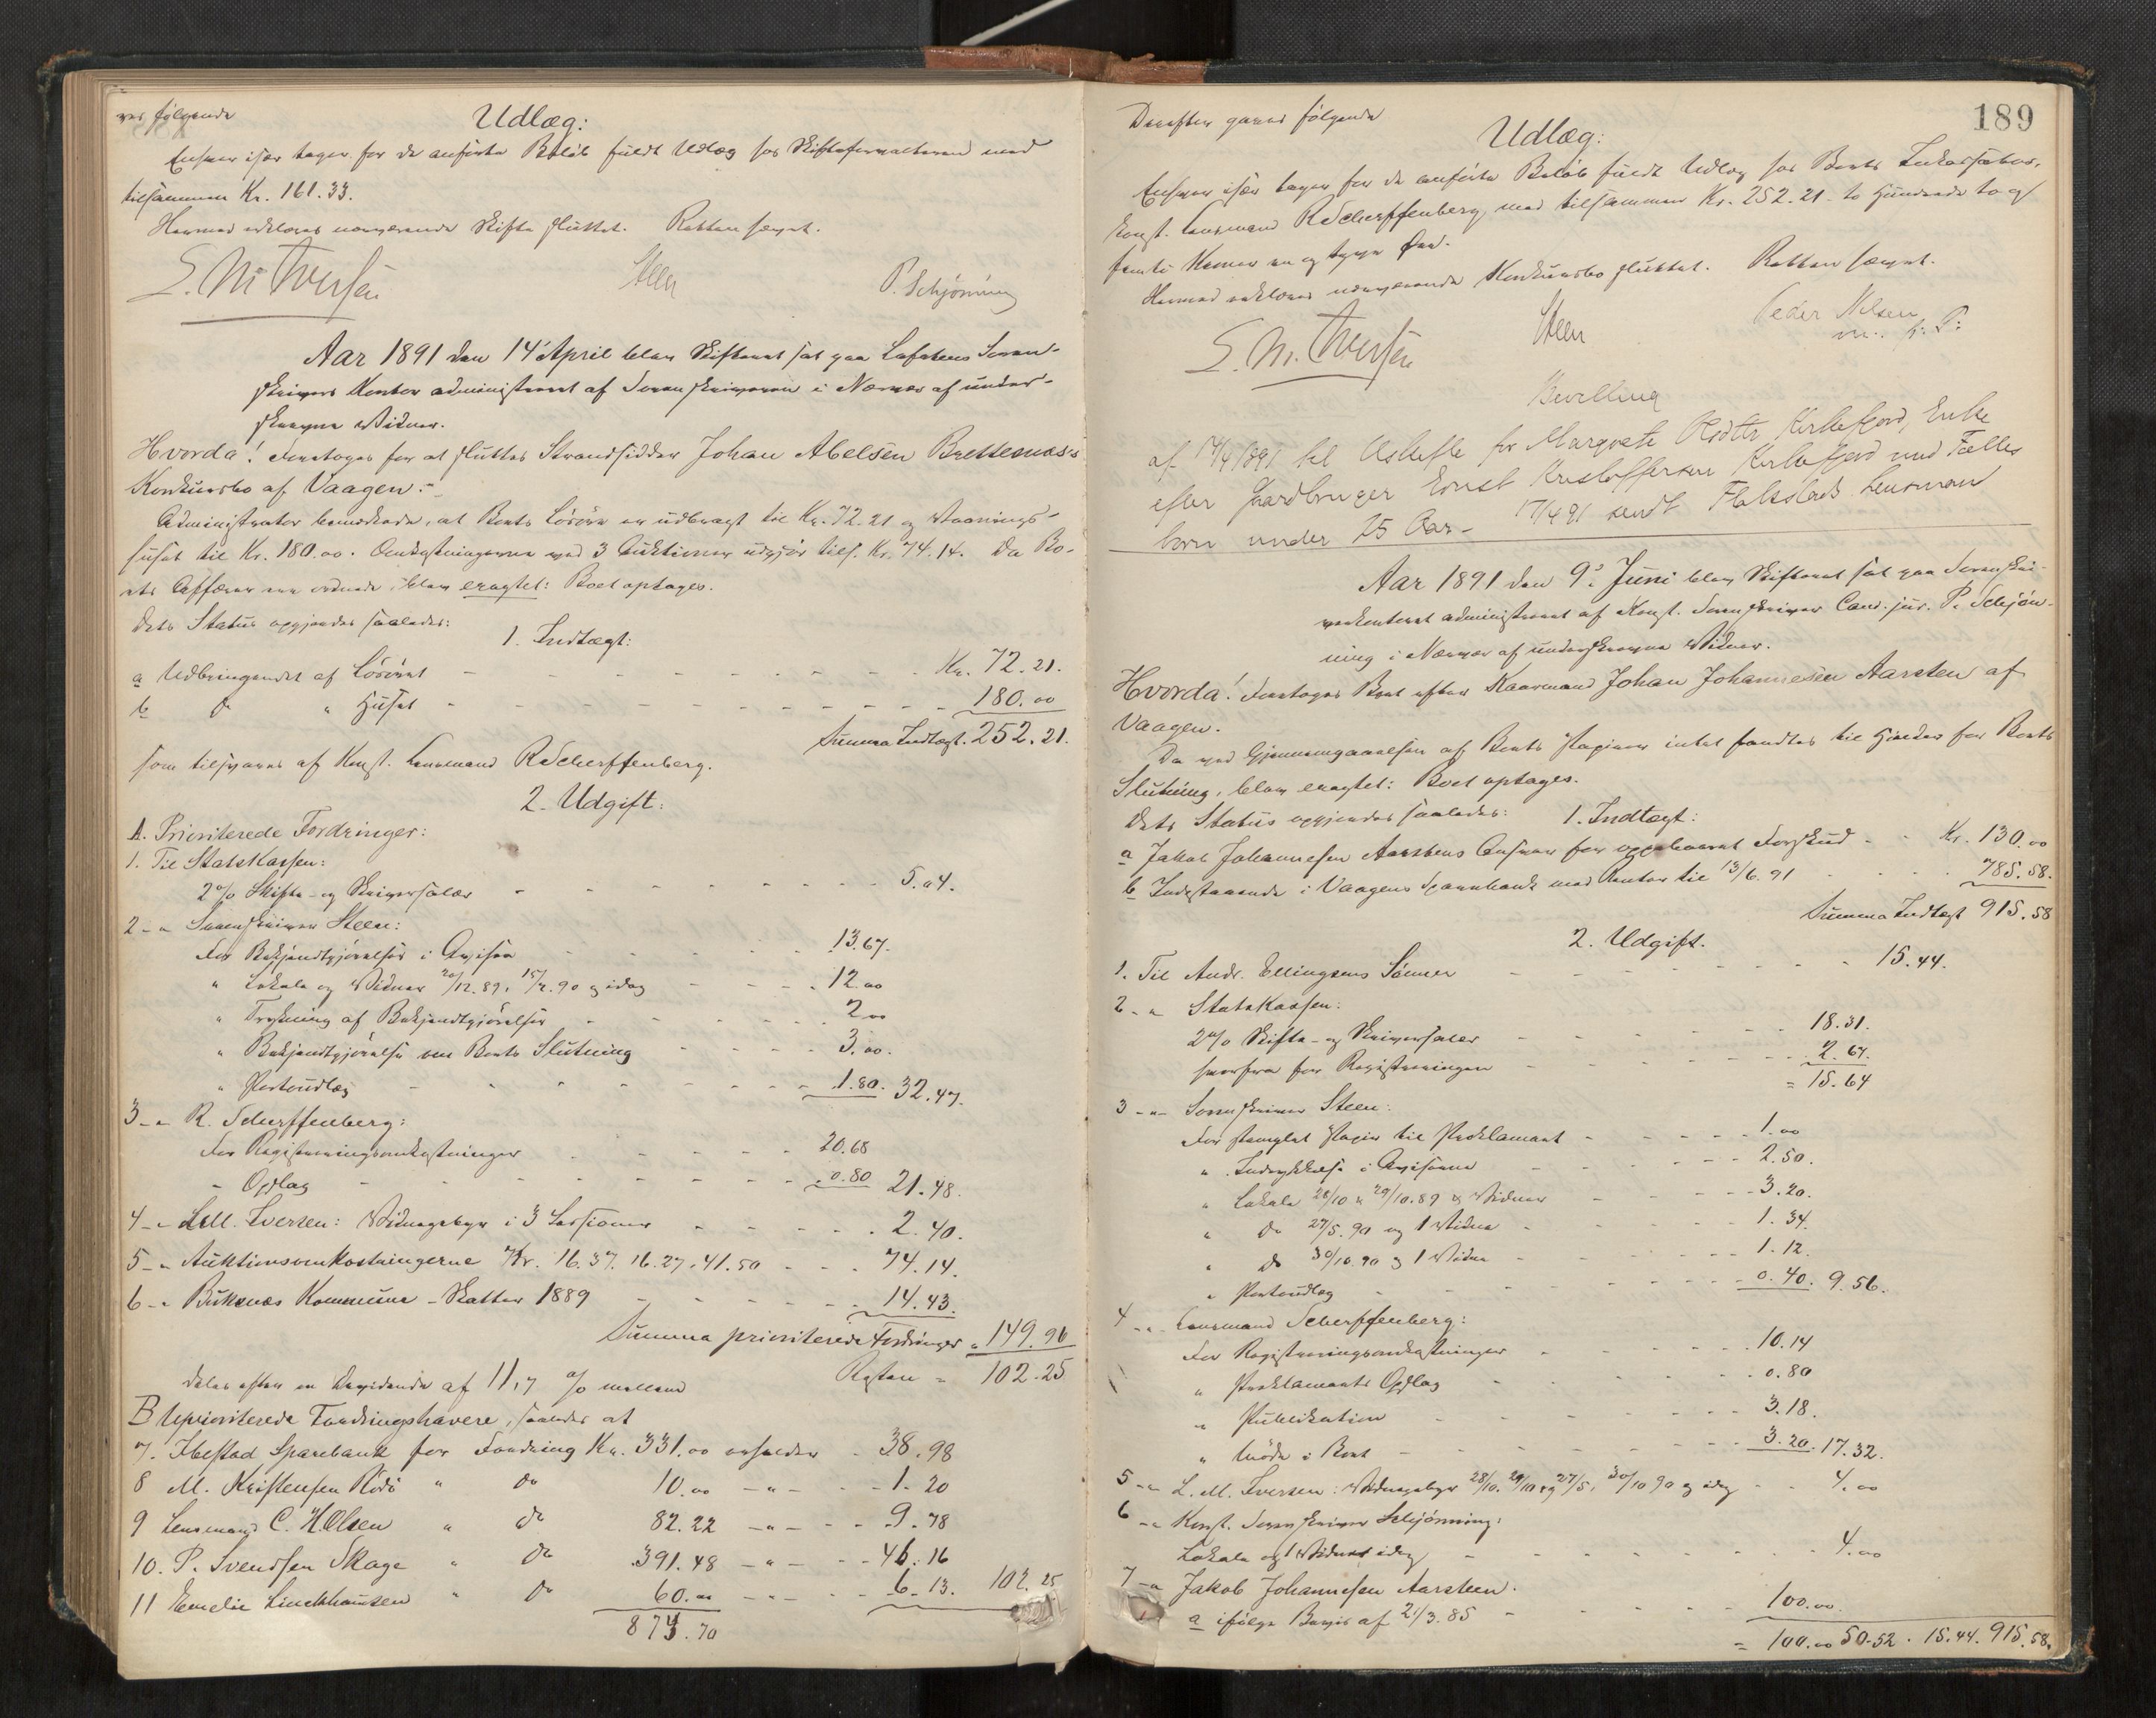 ves følgende
Udlæg:
Enhver især tager for de anførte Beløb fuldt Udlæg hos Skifteforvalteren med
tilsammen Kr. 161.33.
Hermed erklæres nærværende Skifte sluttet. Retten hævet.
L. M. Iversen Steen P. Schjönning
Aar 1891 den 14 April blev Skifteret sat paa Lofotens Soren-
skrivers Kontor administreret af Sorenskriveren i Nærvær af under-
skrevne Vidner.
Hvorda! Foretoges for at sluttes Strandsidder Johan Abelsen Brettesnæs's
Konkursbo af Vaagen:-
Administrator bemærkede, at Boets Løsøre er udbragt til Kr. 72.21 og Vaanings-
huset til Kr. 180.00. Omkostningerne ved 3 Auktioner udgjør tils. Kr. 74.14. Da Bo-
ets Affærer ere ordnede, blev eragtet: Boet optages.
Dets Status opgjordes saaledes:
1. Indtægt:
a Udbringendet af Løsøret - - - Kr. 72.21.
b do " Huset - - - 180.00
Summa Indtægt. 252.21.
som tilsvares af Konst. Lensmand R Scherffenberg.
2. Udgift:
A. Prioriterede Fordringer:
1. Til Statskassen:
2% Skifte- og Skriversalær - - - 5.04.
2 - " Sorenskriver Steen:
For Bekjendtgjørelser i Avisen - - - 13.67.
" Lokale og Vidner 20/12.89, 15/2.90 og idag - - - 12.00
" Trykning af Bekjendtgjørelser - - - 2.00
" Bekjendtgjørelse om Boets Slutning - - - 3.00.
" Portoudlæg - - - 1.80. 32.47.
3 - " R. Scherffenberg:
For Registreringsomkostninger - - - 20.68
" Opslag - - - 0.80 21.48.
4 - " L M. Iversen: Vidnegebyr i 3 Sessioner - - - 2.40.
5 - " Auktionsomkostningerne Kr. 16.37. 16.27. 41.50 - - - 74.14.
6 - " Buksnæs Kommune - Skatter 1889 - - - 14.43.
Summa prioriterede Fordringer = 149.96
Resten = 102.25
deles efter en Dividende af 11,7 % mellem
B Uprioriterede Fordringshavere, saaledes at
7. Ibestad Sparebank for Fordring Kr. 331.00 erholder - 38.98
8 M. Kristensen Rödö " do 10.00 - " - - 1.20
9 Lensmand C. H. Olsen " do 82.22 - " - - 9.78
10. P. Svendsen Skage " do 391.48 - " - - 46.16
11 Emelie Linckhausen " do 60.00 - " - - 6.13. 102.25
874.70
189
Derefter gaves følgende
Udlæg:
Enhver især tager for de anførte Beløb fuldt Udlæg hos Boets Inkassator,
Konst. Lensmand R Scherffenberg, med tilsammen Kr. 252.21 - to Hundrede to og
femti Kroner en og tyve Øre.
Hermed erklæres nærværende Konkursbo sluttet. Retten hævet.
L. M. Iversen Steen Peder Nilsen
m. p. P:
Bevilling
af 14/4 1891 til Uskifte for Margrete Kirkefjord, Enke
efter Gaardbruger Ernst Kristoffersen Kirkefjord med Fælles
børn under 25 Aar - 17/4 91 sendt Flakstads Lensmand
Aar 1891 den 9de Juni blev Skifteret sat paa Sorenskri-
verkontoret administreret af Konst. Sorenskriver Cand. jur. P. Schjön-
ning i Nærvær af underskrevne Vidner.
Hvorda! Foretoges Boet efter Kaarmand Johan Johannesen Aarsten af
Vaagen.
Da ved Gjennemgaaelsen af Boets Papirer intet fandtes til Hinder for Boets
Slutning, blev eragtet: Boet optages.
Dets Status opgjordes saaledes: 1. Indtægt:
a Jakob Johannesen Aarstens Ansvar for oppebaaret Forskud - - Kr. 130.00
b Indestaaende i Vaagens Sparebank med Renter til 13/6.91 - - - 785.58.
Summa Indtægt 915.58
2. Udgift.
1. Til Andr. Ellingsens Sönner - - - 15.44.
2 - " Statskassen:
2% Skifte- og Skriversalær - - - 18.31.
herfra for Registreringen - - - 2.67.
= 15.64
3 - " Sorenskriver Steen:
For stemplet Papir til Proklamaet - - - 1.00
" Indrykkelse i Aviserne - - - 2.50.
" Lokale 28/10 & 29/10.89 & Vidner - - - 3.20.
" do 27/5.90 og 1 Vidne - - - 1.34.
" do 30/10.90 & 1 Vidne - - - 1.12.
" Portoudlæg - - - 0.40. 9.56.
4 - " Lensmand Scherffenberg:
For Registreringsomkostninger - - - 10.14
" Proklamaets Opslag - - - 0.80
" Publikation - - - 3.18.
" Møde i Boet - - - 3.20. 17.32.
5 - " L. M. Iversen: Vidnegebyr 28/10. 29/10 & 27/5, 30/10 90 og idag - - 4.00
6 - " Konst. Sorenskriver Schjönning:
Lokale og 1 Vidnes idag - - - 4.00
7 - " Jakob Johannesen Aarsteen.
a ifølge Bevis af 21/3.85 - - - 100.00.
= 100.00 50.52. 15.44. 915.58.